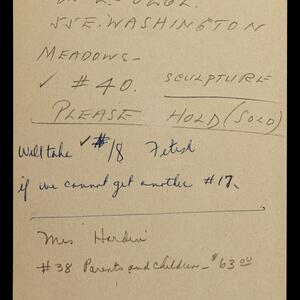 55E. WASHINGTON
MEADOWS-
✓ #40. SCULPTURE
PLEASE HOLD (SOLO)
Will take ✓ #18 Fetish
if we cannot get another #17.
Mrs Hardin
#38 Parents and Children - $63.00